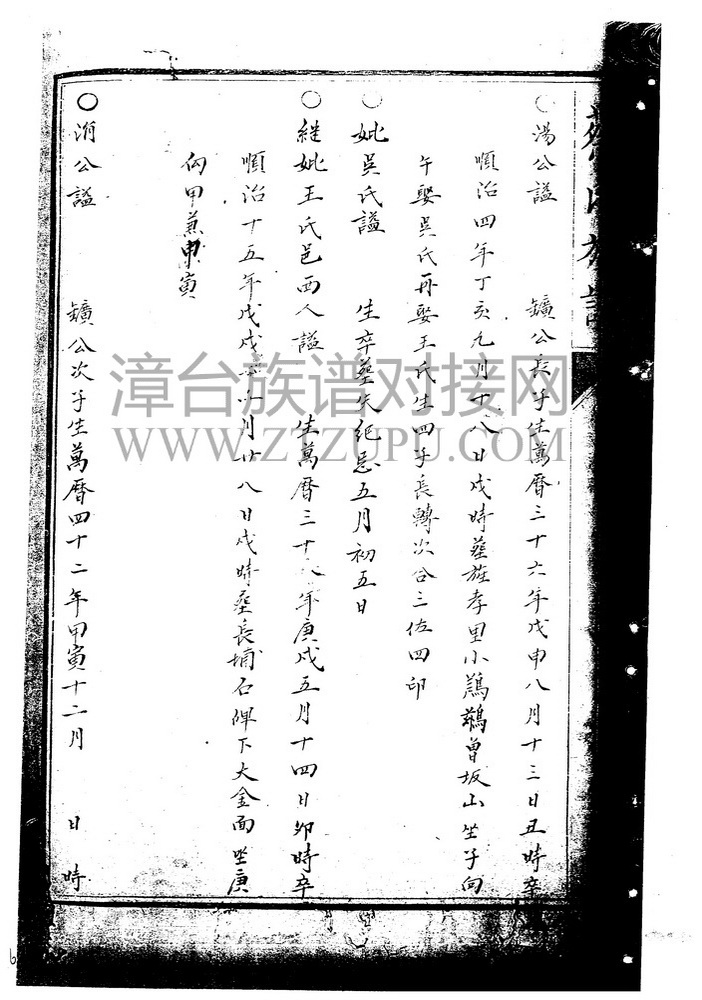 ○湯公謚 鑛公長子生萬曆三十六年戊申八月十三日丑時卒
順治四年丁亥九月十八日戌時葬旌孝里小鷓鴣曾坂山坐子向
午娶吳氏再娶王氏生四子長轉次合三伍四印
○妣吳氏謚 生卒塟失紀忌五月初五日
○継妣王氏邑西人謚 生萬曆三十八年庚戌五月十四日卯時卒
順治十五年戊戌十月廿八日戌時塟長埔石碑下大金面坐庚
向甲兼申寅
○涓公謚 鑛公次子生萬曆四十二年甲寅十二月 日 時
漳台族谱对接网
WWW.ZTZUPU.COM
6